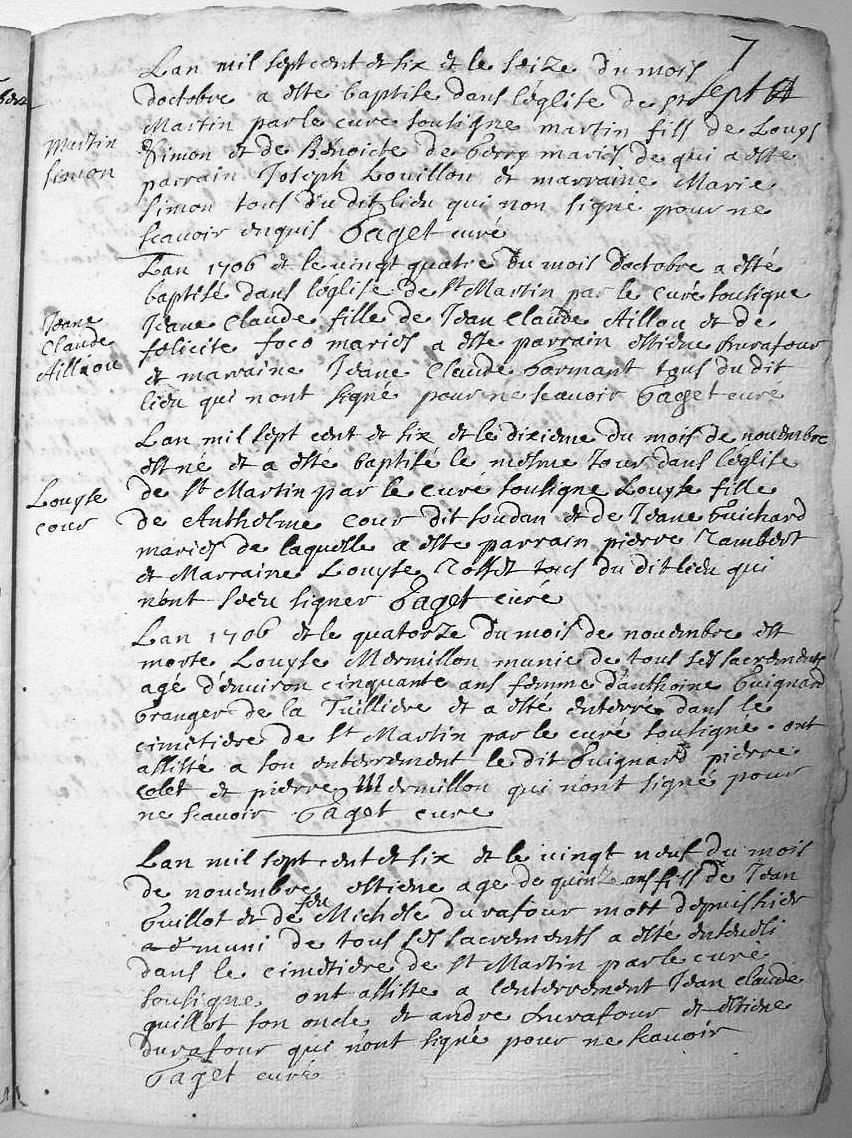 7
sept
Lan mil sept cent et six et le seize du mois
doctobre a este baptise dans leglise de st
Martin par le cure sousigne martin fils de Louys
Simon et de Benoicte de berry mariés de qui a este
parrain Joseph Louillon et marraine Marie
Simon tous du dit lieu qui non signe pour ne
scavoir enquis Paget curé
Martin
simon
Lan 1706 et le vingt quatre du mois doctobre a esté
baptisé dans léglise de St Martin par le curé sousigne
Jeane Claude fille de Jean Claude Aillou et de
felicite foco mariés a este parrain estiene Durafour
et marraine Jeane Claude Formant tous du dit
lieu qui nont signé pour ne scavoir Paget curé
Jeane
Claude
Aillou
Lan mil sept cent et six et le dixieme du mois de nouembre
est né et a esté baptisé le mesme Jour dans léglise
de St Martin par le curé sousigne Louyse fille
de Antholme cour dit soudan et de Jeane Guichard
mariés de laquelle a este parrain pierre Jambert
et Marraine Louyse Rosset tous du dit lieu qui
n'ont sceu signer Paget curé
Louyse
cour
Lan 1706 et le quatorze du mois de nouembre est
morte Louyse Mermillon munie de tous ses sacrements
agé d'enuiron cinquante ans femme d'anthoine Guignard
Granger de la Tuilliere et a esté enterré dans le
cimetiere de St Martin par le curé sousigné ont
assisté a son enterrement le dit Guignard pierre
Colet et pierre Mermillon qui n'ont signé pour
ne scavoir Paget cure
Lan mil sept cent et six et le vingt neuf du mois
de nouembre estiene age de quinze ans fils de Jean
Guillot et de feu Michele durafour mort depuis hier
muni de tous ses sacrements a esté enseueli
dans le cimetiere de St Martin par le curé
sousigne ont assisté a l'enterrement Jean Claude
guillot son oncle et andre durafour et estiene
durafour qui n'ont signé pour ne scavoir
Paget curé